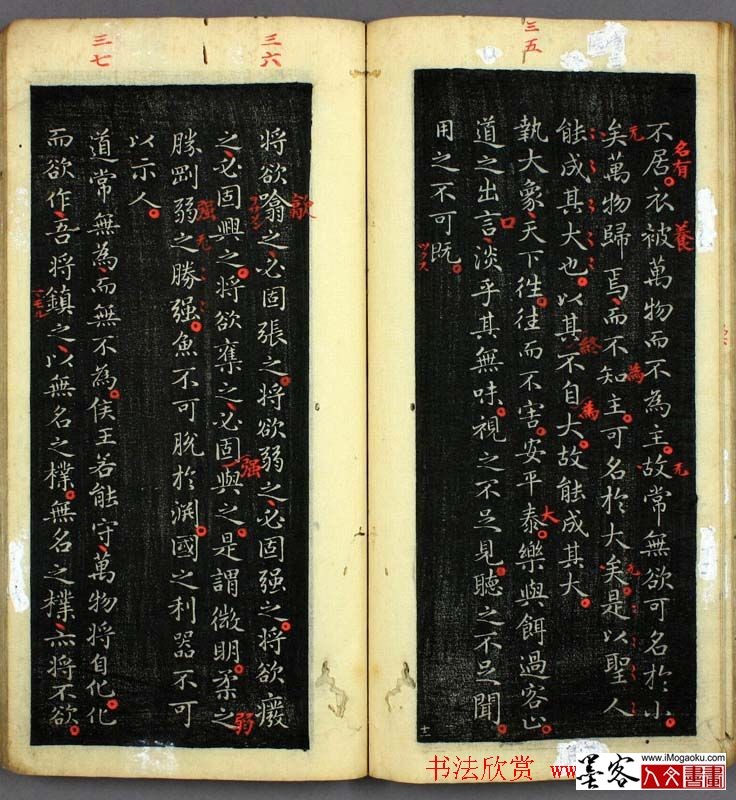 三五
不居衣被萬物而不為主故常無欲可名於小
矣萬物歸焉而不知主可名於大矣是以聖人
能成其大也以其不自大故能成其大
執大象天下徃徃而不害安平泰樂與餌過客止
道之出言淡乎其無味視之不足見聴之不足聞
用之不可既
名有
養
元
為
終
為
元
大
口
ツクス
十一
三六
将欲噏之必固張之将欲弱之必固强之将欲癈
之必固興之将欲棄之必固與之是謂微明柔之
勝剛弱之勝强魚不可脱於渊國之利器不可
以示人
歙
强
弱
强
三七
道常無為而無不為侯王若能守萬物将自化化
而欲作吾将鎮之以無名之樸無名之樸亦将不欲
书法欣赏
www.iMogaoku.com
墨客